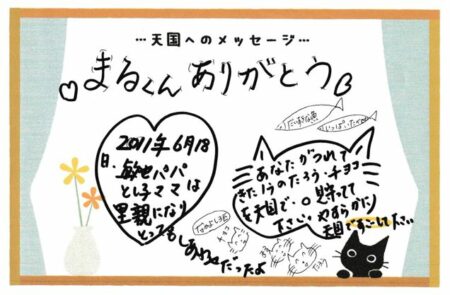 …天国へのメッセージ…
まるくん ありがとう
2011年6月18
日、敏也パパ
とし子ママは
里親になり
とってもしあわせだったよ
だいすきな魚
いっぱいたべてね
あなたがつれて
きた
チョコ
を天国で
下さい。やすらかに
天国ですごして下さい
なかよし3匹
チョコ